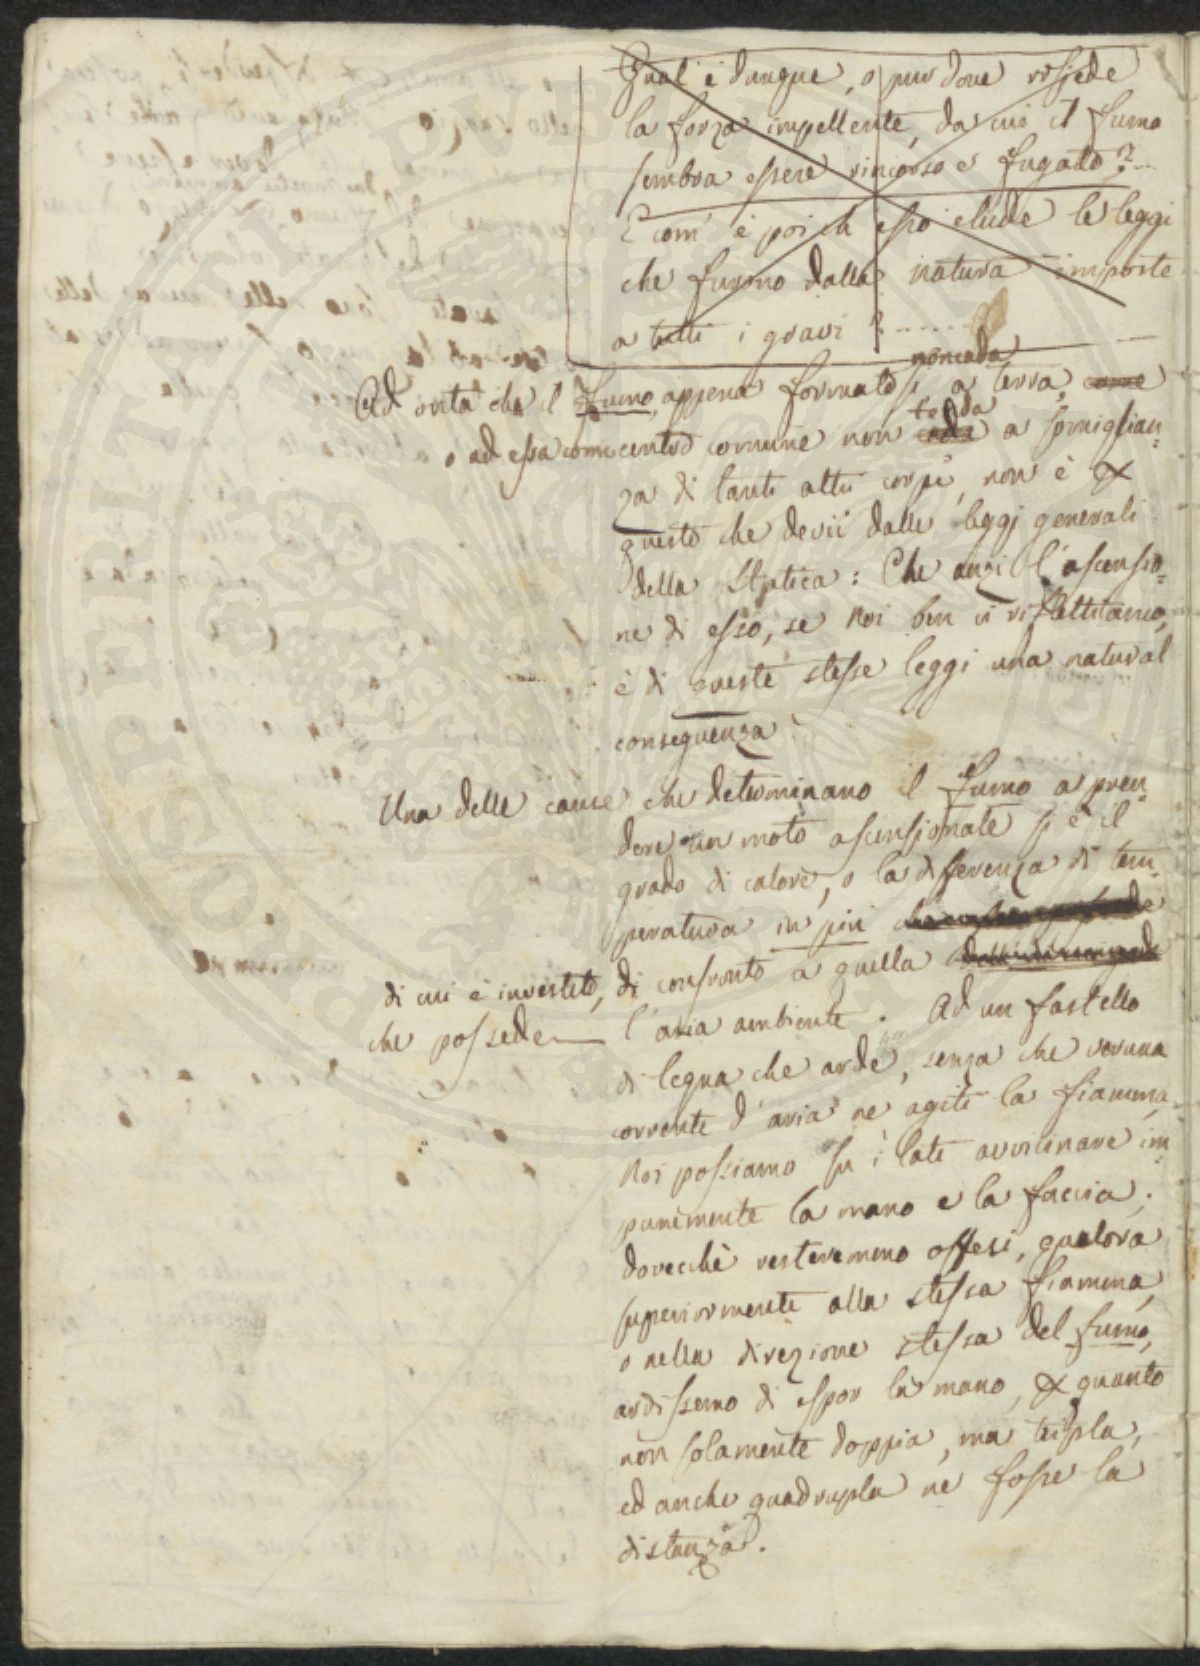 Qual'è dunque, o pur dove risiede
la forza impellente, da cui il fumo
sembra essere rincorso e fugato?...
E com'è poi ch'esso elude le leggi
che furono dalla natura imposte
a tutti i gravi?.......
non cada
Ad onta che il fumo, appena formatosi, a terra, come
tenda
o ad essa come centro comune non cada a somiglian=
za di tanti altri corpi, non è per
questo che devii dalle leggi generali
della Statica: Che anzi l'ascensio=
ne di esso, se noi ben vi riflettiamo,
è di queste stesse leggi una natural
conseguenza.
Una delle cause che determinano il fumo a pren=
dere un moto ascensionale si è il
grado di calore, o la differenza di tem=
peratura in più
di cui è investito, di confronto a quella
che possede l'aria ambiente. Ad un fastello
di legna che arde, senza che veruna
corrente d'aria ne agiti la fiamma,
noi possiamo su i lati avvicinare im=
punemente la mano e la faccia;
dovecchè resteremmo offesi, qualora
superiormente alla stessa fiamma,
o nella direzione stessa del fumo,
ardissemo di espor la mano, per quanto
non solamente doppia, ma tripla,
ed anche quadrupla ne fosse la
distanza.
PROSPERITATI PVBLI